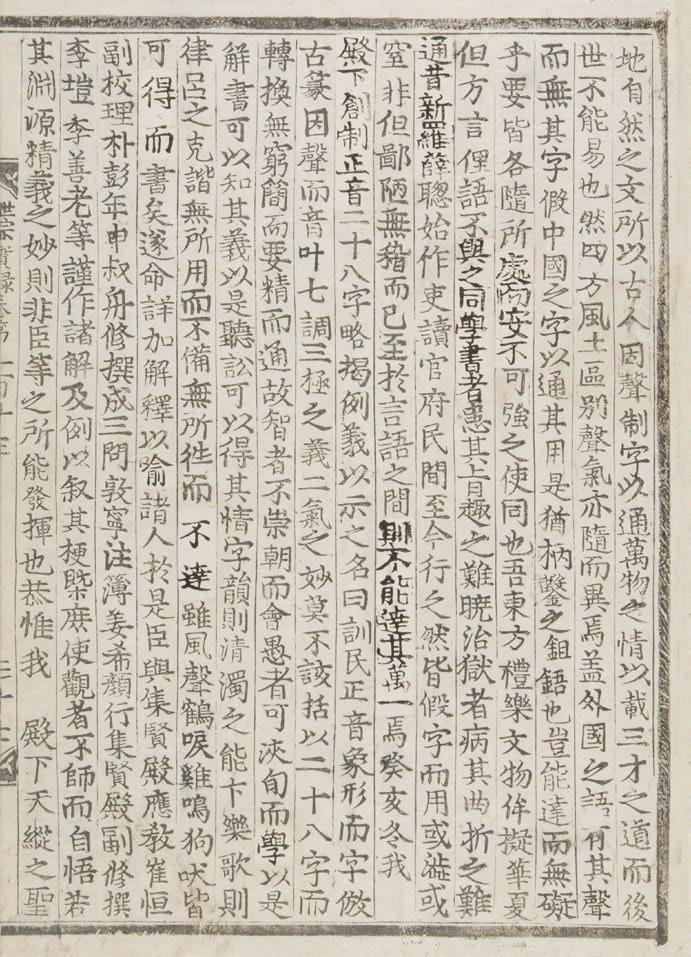 地自然之文所以古人因聲制字以通萬物之情以載三才之道而後
世不能易也然四方風土區別聲氣亦隨而異焉盖外國之語有其聲
而無其字假中國之字以通其用是猶枘鑿之鉏鋙也豈能達而無礙
乎要皆各隨所處而安不可強之使同也吾東方禮樂文物侔擬華夏
但方言俚語不與之同學書者患其旨趣之難曉治獄者病其曲折之難
通昔新羅薛聰始作吏讀官府民間至今行之然皆假字而用或澁或
窒非但鄙陋無稽而已至於言語之間則不能達其萬一焉癸亥冬我
殿下創制正音二十八字略揭例義以示之名曰訓民正音象形而字倣
古篆因聲而音叶七調三極之義二氣之妙莫不該括以二十八字而
轉換無窮簡而要精而通故智者不崇朝而會愚者可浹旬而學以是
解書可以知其義以是聽訟可以得其情字韻則清濁之能卞樂歌則
律呂之克諧無所用而不備無所徃而不達雖風聲鶴唳雞鳴狗吠皆
可得而書矣遂命詳加解釋以喩諸人於是臣與集賢殿應敎崔恒
副校理朴彭年申叔舟修撰成三問敦寧注簿姜希顔行集賢殿副修撰
李塏李善老等謹作諸解及例以叙其梗槩庶使觀者不師而自悟若
其淵源精義之妙則非臣等之所能發揮也恭惟我 殿下天縱之聖
實錄卷第一百十三